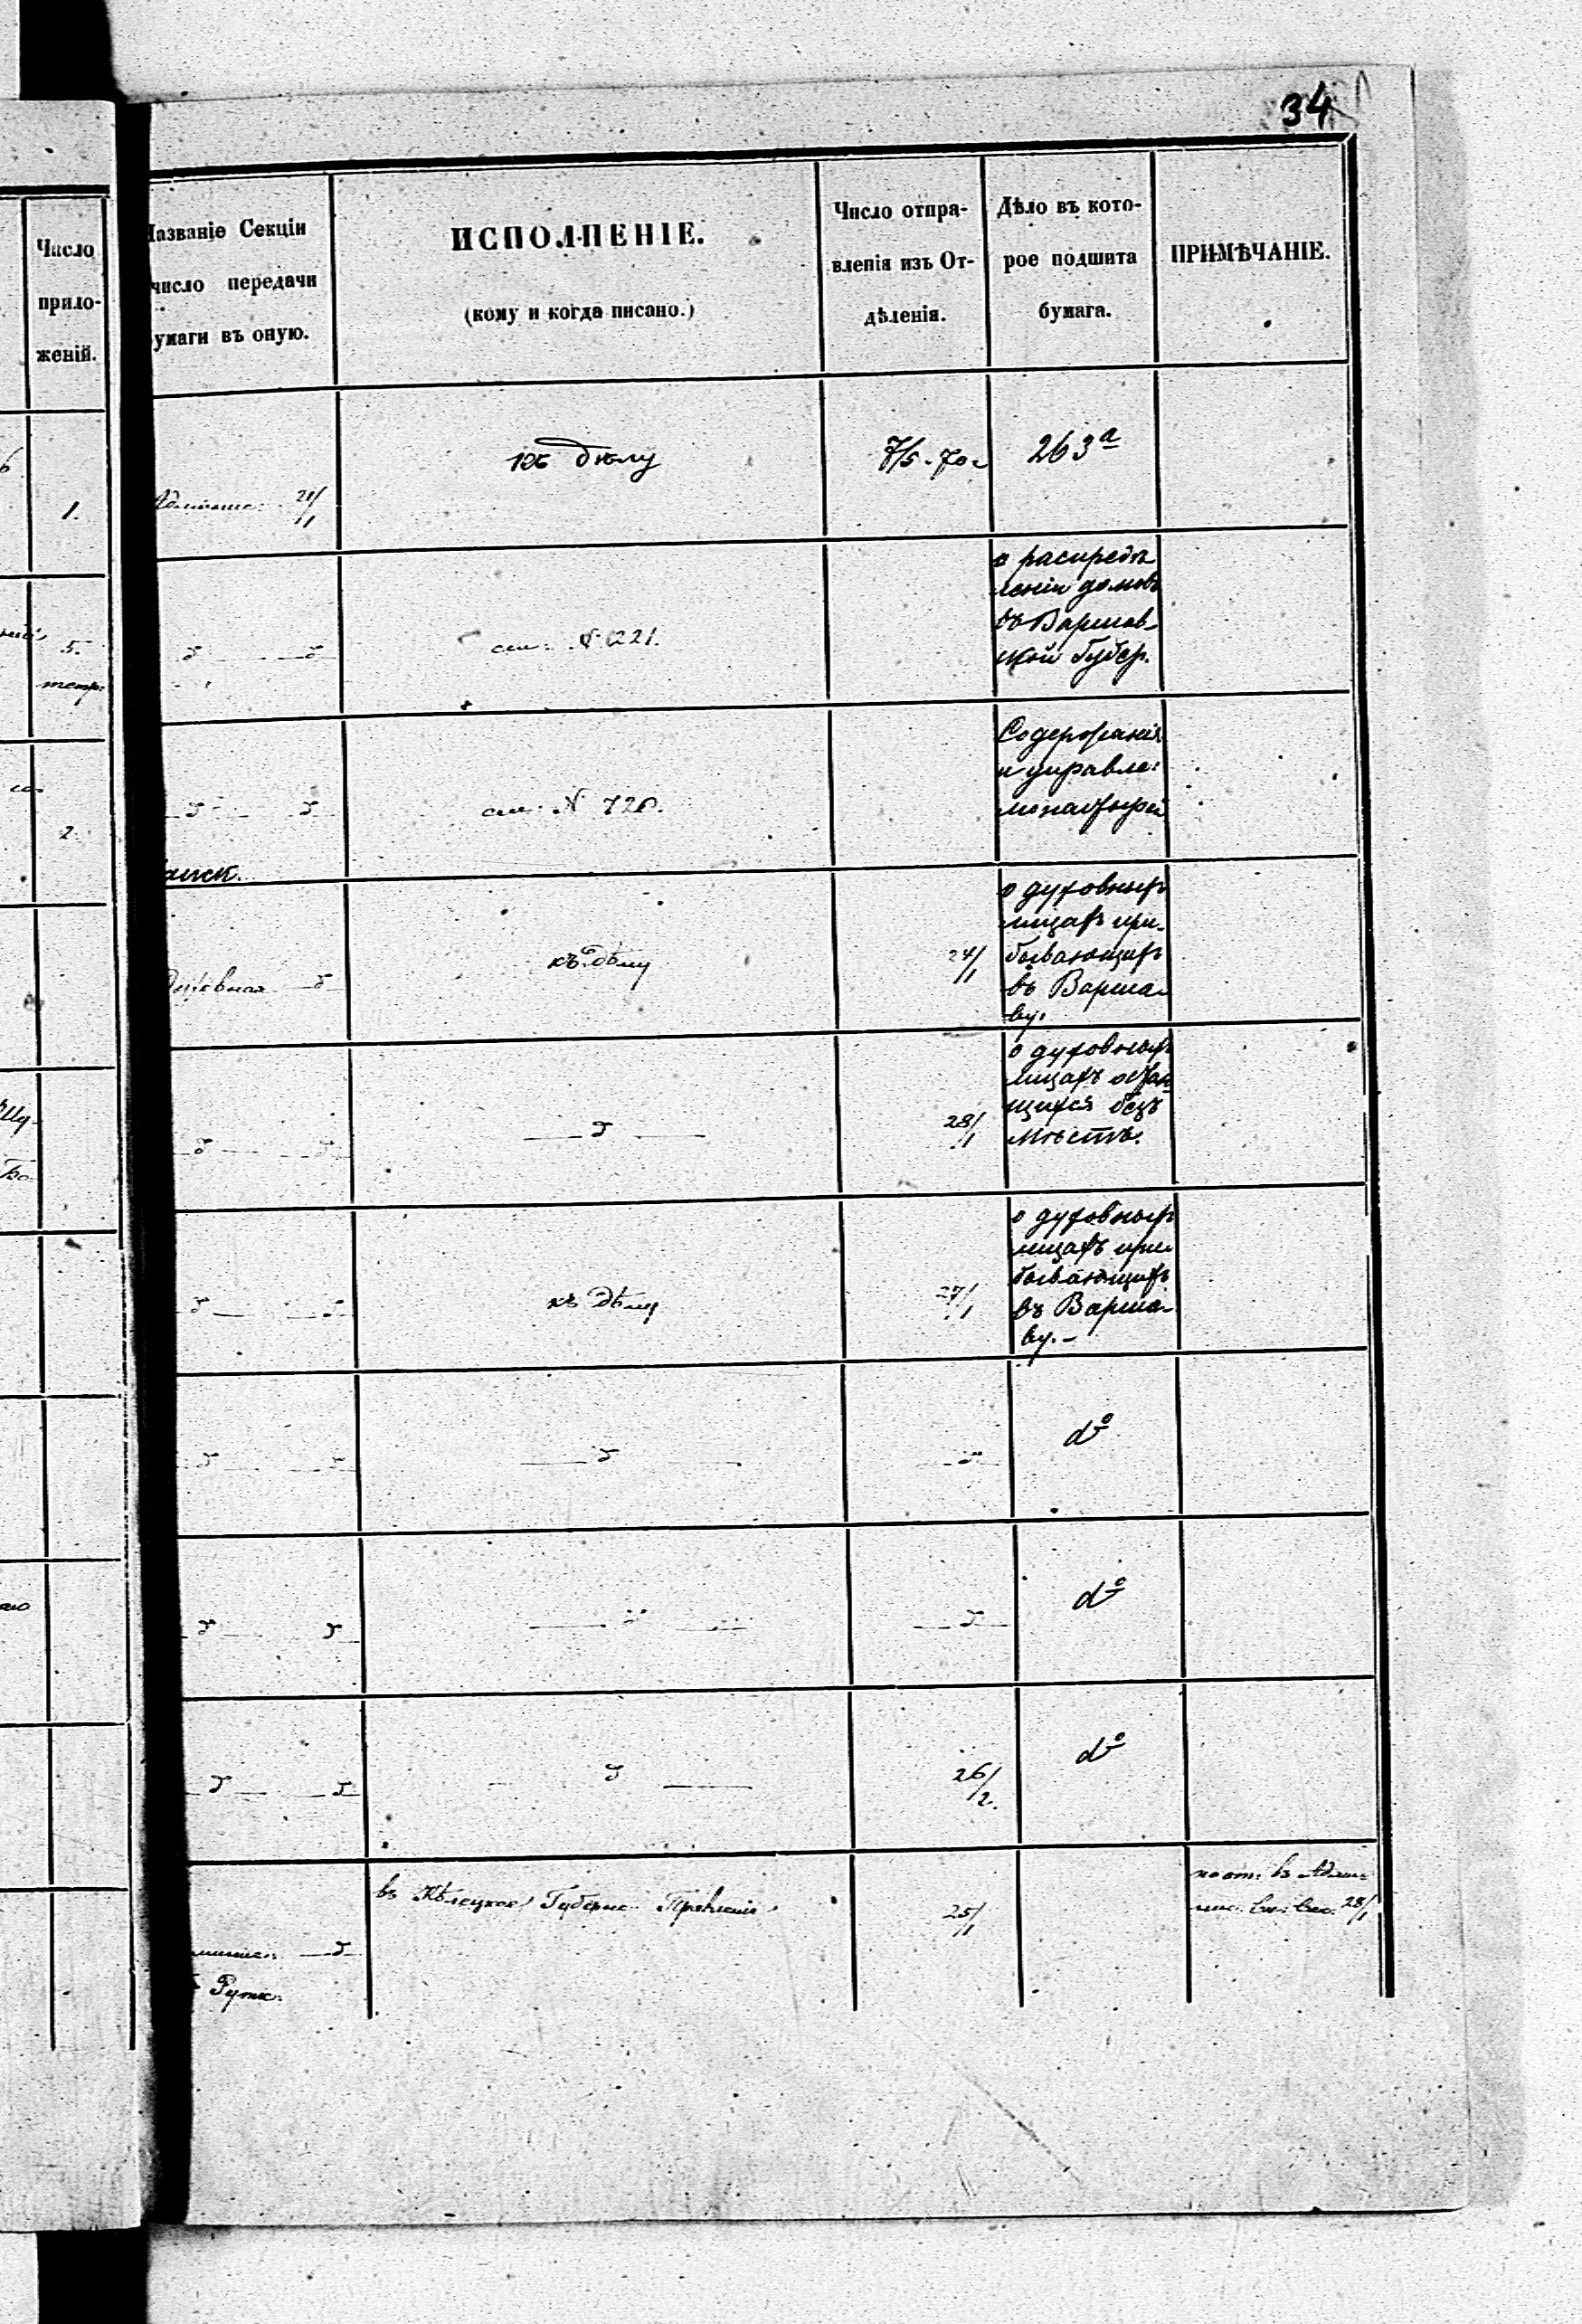 34
Число
прило-
женій.
Названіе Секціи
число передачи
бумаги въ оную.
ИСПОЛНЕНІЕ.
(кому и когда писано.)
Число отпра-
вленія изъ От-
дѣленія.
Дѣло въ кото-
рое подшита
бумага.
ПРИМѢЧАНІЕ.
1.
21/1
къ дѣлу
7/5. 70 г
263а
5.
тетр:
д д
см: № 221.
о распредѣ
леніи домовъ
въ Варшав-
ской Губер.
2.
д д
см: № 720.
Содержанія
и управле:
монастырей
къ дѣлу
24/1
о духовныхъ
лицахъ при-
бывающихъ
въ Варша-
ву.
д д
д
28/1
о духовныхъ
лицахъ остаю
щихся безъ
мѣстъ.
д д
къ дѣлу
27/1
о духовныхъ
лицахъ при
бывающихъ
въ Варша-
ву.-
д д
д
д
dо
д д
д
д
dо
д д
д
26/2.
dо
въ Кѣлецкое Губернс. Правленіе
25/1
28/1